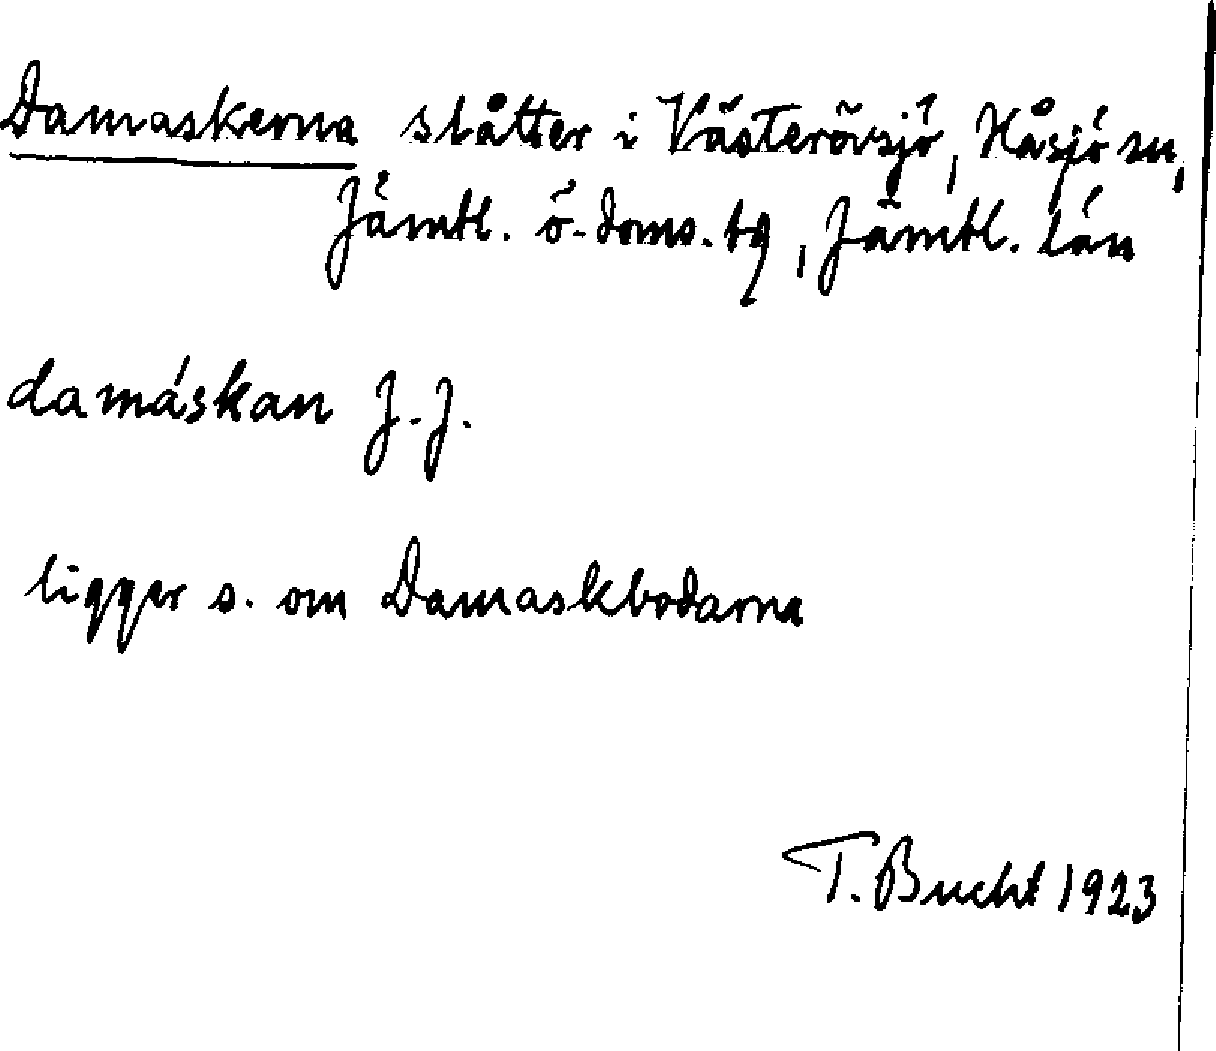 Damaskerna slåtter i Västerövsjö, Håsjö sn,
Jämtl. ö. doms. tg, Jämtl. län
damáskan J. J.
ligger s. om Damaskbodarna
T. Bucht 1923